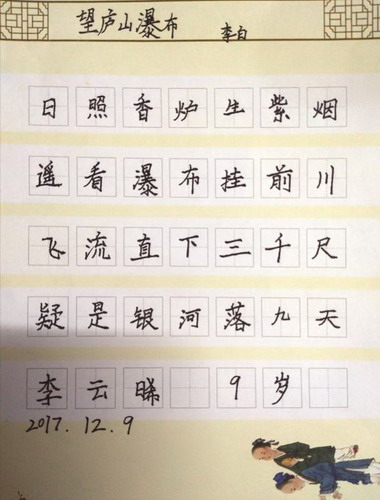 望庐山瀑布 李白
日照香炉生紫烟
遥看瀑布挂前川
飞流直下三千尺
疑是银河落九天
李云睎 9岁
2017.12.9